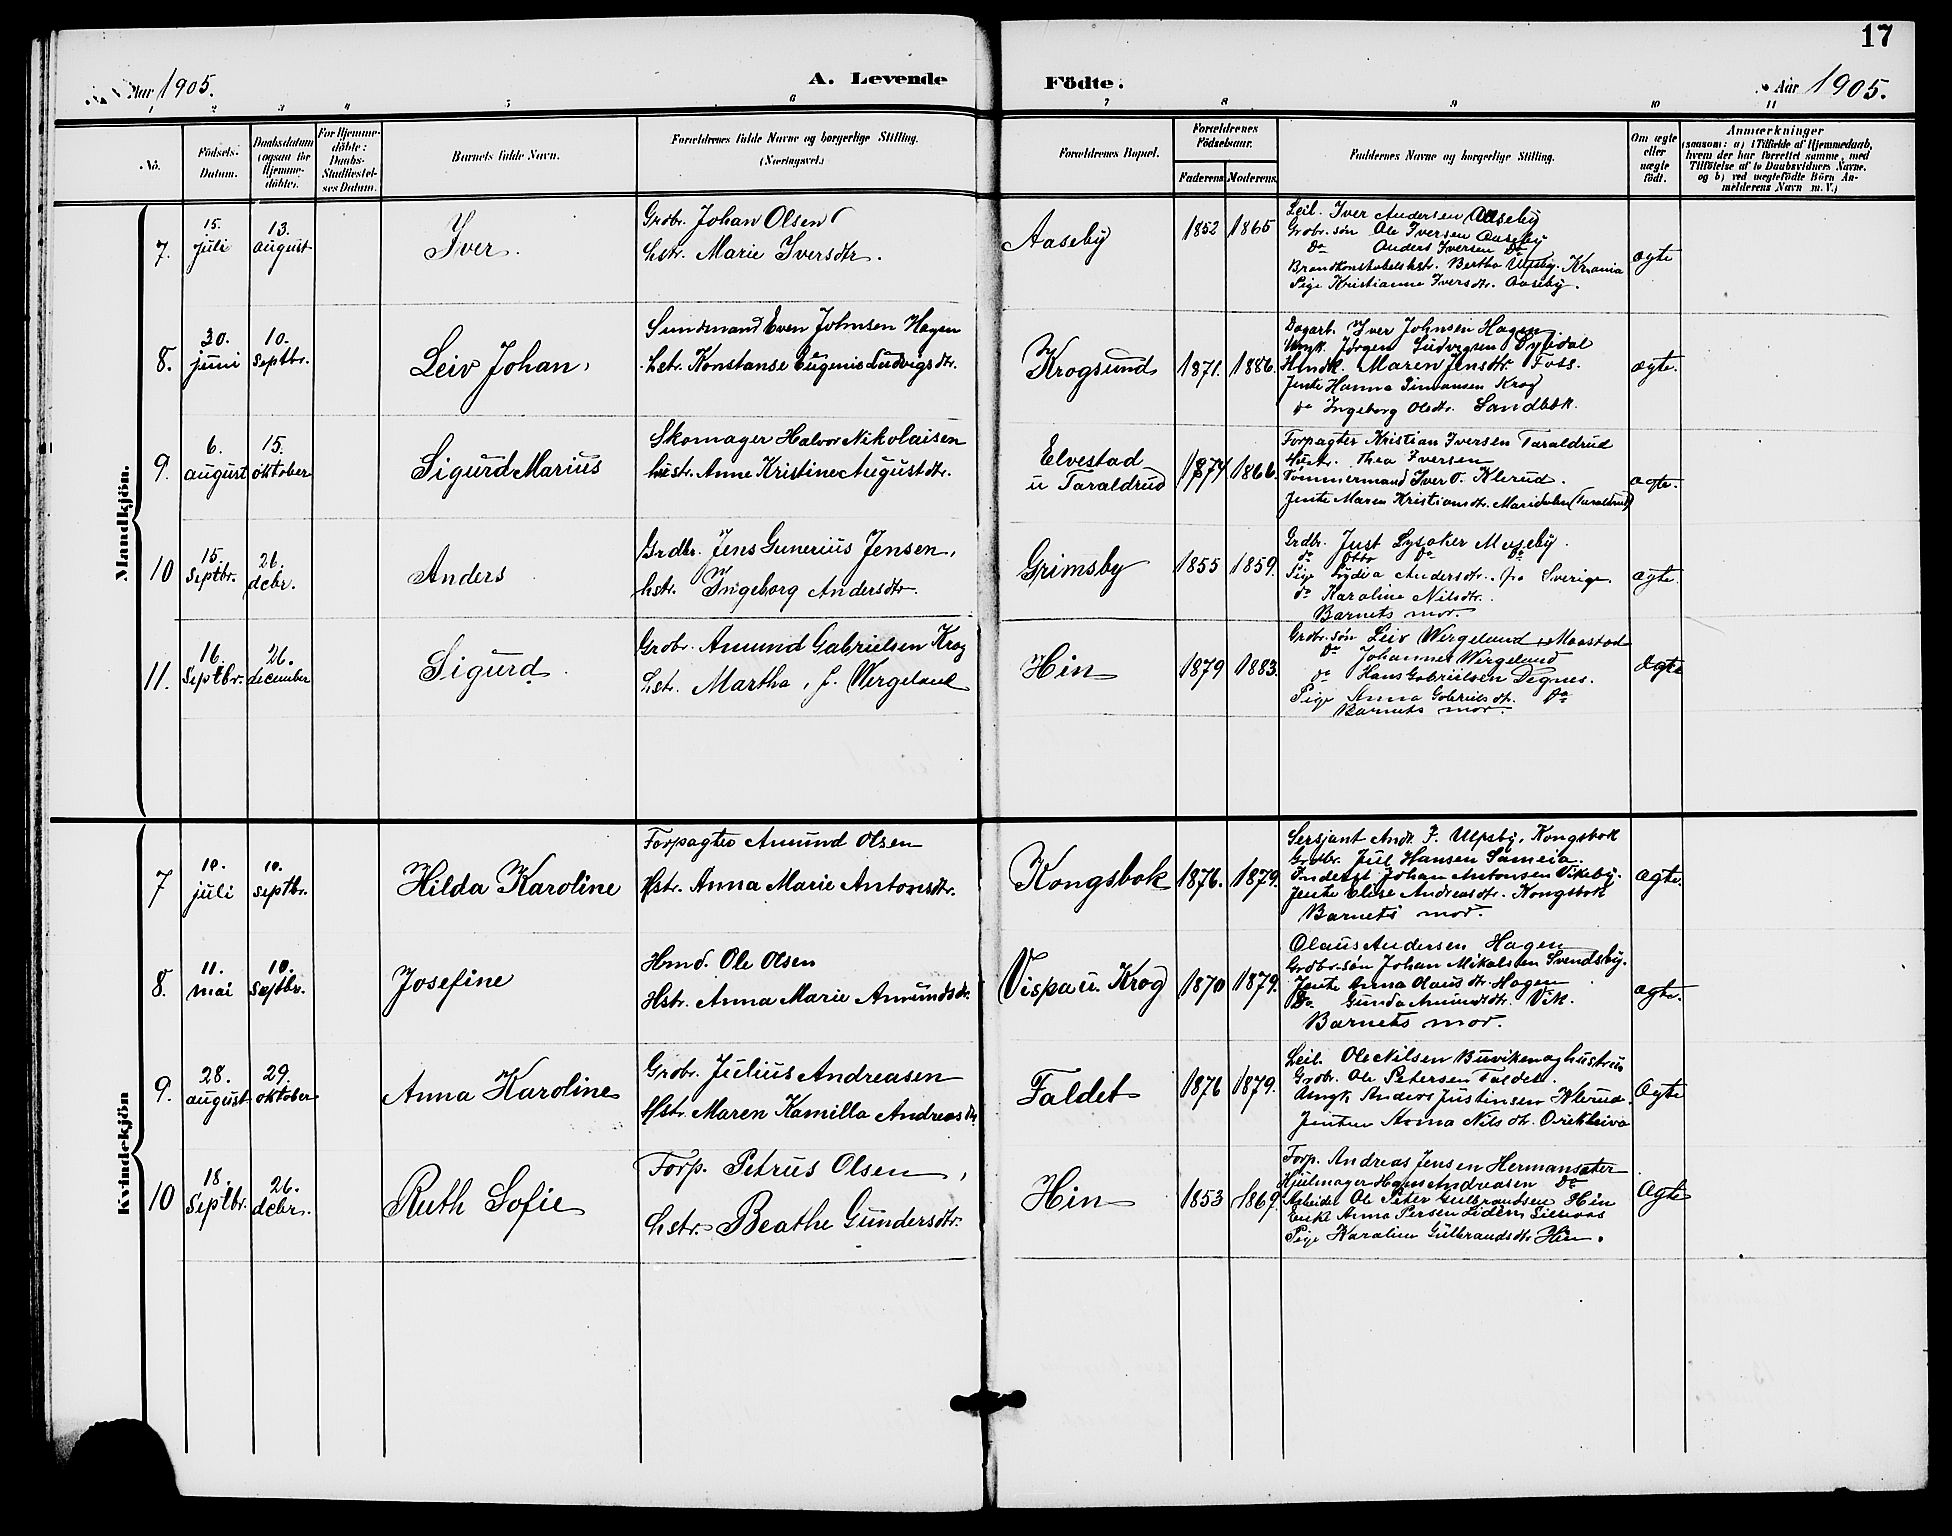 17
Aar 1905.
A. Levende
Födte.
Aar 1905.
1 2 3 4 5 6 7 8 9 10 11
No.
Födsels-Datum.
Daabsdatum (ogsaa for Hjemme-döbte).
For Hjemme-döbte: Daabs-Stadfæstel-ses Datum.
Barnets fulde Navn.
Forældrenes fulde Navne og borgerlige Stilling. (Næringsvei.)
Forældrenes Bopæl.
Forældrenes Födselsaar.
Faderens
Moderens.
Faddernes Navne og borgerlige Stilling.
Om ægte eller uægte födt.
Anmærkninger (saasom: a) i Tilfælde af Hjemmedaab, hvem der har forrettet samme, med Tilföielse af to Daabsvidners Navne. og b) ved uægtefödte Börn An-melderens Navn m. V.)
Mandkjön.
7. 15. juli 13. august
Iver.
Grdbr. Johan Olsen
hstr. Marie Iversdtr.
Aaseby 1852 1865
Leil. Iver Andersen Aaseby
Grdbr. søn Ole Iversen Aaseby
do Anders Iversen do
Brandkonstabelshstr. Bertha Ulpsby. Krania
Pige Kristianne Iversdtr. Aaseby.
ægte
8. 30. juni 10. septbr.
Leiv Johan.
Sundmand Even Johnsen Hagen
hstr. Konstanse Eugenie Ludvigsdtr.
Krogsund 1871. 1886.
Dagarb. Iver Johnsen Hagen
Ungk. Jørgen Ludvigsen Dyrdal
Hmdk. Maren Jensdtr. Foss.
Jente Hanna Simonsen Krog
do Ingeborg Olsdtr. Sandbæk.
ægte.
9. 6. august 15. oktober
Sigurd Marius
Skomager Halvor Nikolaisen
hustr. Anne Kristine Augustdtr.
Elvestad
u Taraldrud 1874 1866.
Forpagter Kristian Iversen Taraldrud
Hustr. Thea Iversen
Tømmermand Iver O. Klerud.
Jente Maren Kristiansdtr. Maridalen (Taraldrud)
ægte.
10 15. Septbr. 26. decbr.
Anders
Grdbr. Jens Gunerius Jensen,
hstr. Ingeborg Andersdtr.
Grimsby 1855 1859.
Grdbr. Just Lysaker Mæseby.
do Otto do do
Pige Lydia Andersdtr. fra Sverige
do Karoline Nilsdtr.
Barnets mor
ægte.
11. 16. Septbr. 26. december
Sigurd.
Grdbr. Amund Gabrielsen Krog
hstr. Martha, f. Wergeland
Hin 1879 1883.
Grdbr. søn Leiv Wergeland, Maastad
do Johannes Wergeland
do Hans Gabrielsen Degnes.
Pige Anna Gabrielsdtr. do
Barnets mor.
ægte
Kvindekjön
7 10. juli 10. septbr.
Hilda Karoline
Forpagter Amund Olsen
Hstr. Anna Marie Antonsdtr.
Kongsbok 1876. 1879.
Sersjant Andr. J. Ulpsby, Kongsbok
Grdbr. Jul Hansen Sameia.
Inderst Johan Antonsen Vikeby.
Jente Elise Andreasdtr. Kongsbok
Barnets mor.
ægte.
8. 11. mai 10. Septbr.
Josefine
Hmd. Ole Olsen
Hstr. Anna Marie Amundsdtr.
Vispa u. Krog 1870 1879.
Olaus Andersen Hagen
Grdbr. søn Johan Mikalsen Svendsby.
Jente Anna Olausdtr. Hagen
Do Gunda Amundsdtr. Vik.
Barnets mor.
ægte.
9. 28. august 29. oktober
Anna Karoline
Grdbr. Julius Andreasen
Hstr. Maren Kamilla Andreasdtr
Faldet 1876 1879.
Leil. Ole Nilsen Buviken og hustru
Grdbr. Ole Petersen Faldet.
Ungk. Anders Justinsen Klerud.
Jenten Anna Nilsdtr.
Ægte
10 18. Septbr. 26. decbr.
Ruth Sofie
Forp. Petrus Olsen,
hstr. Beathe Gundersdtr.
Hin 1853 1869.
Forp. Andreas Jensen Hermansæter
Hjulmager Hans Andreasen do
Arbeider Ole Peter Gulbrandsen Hin
Enke Anna Persen Liden
Pige Karoline Gulbrandsdtr Hin.
Ægte